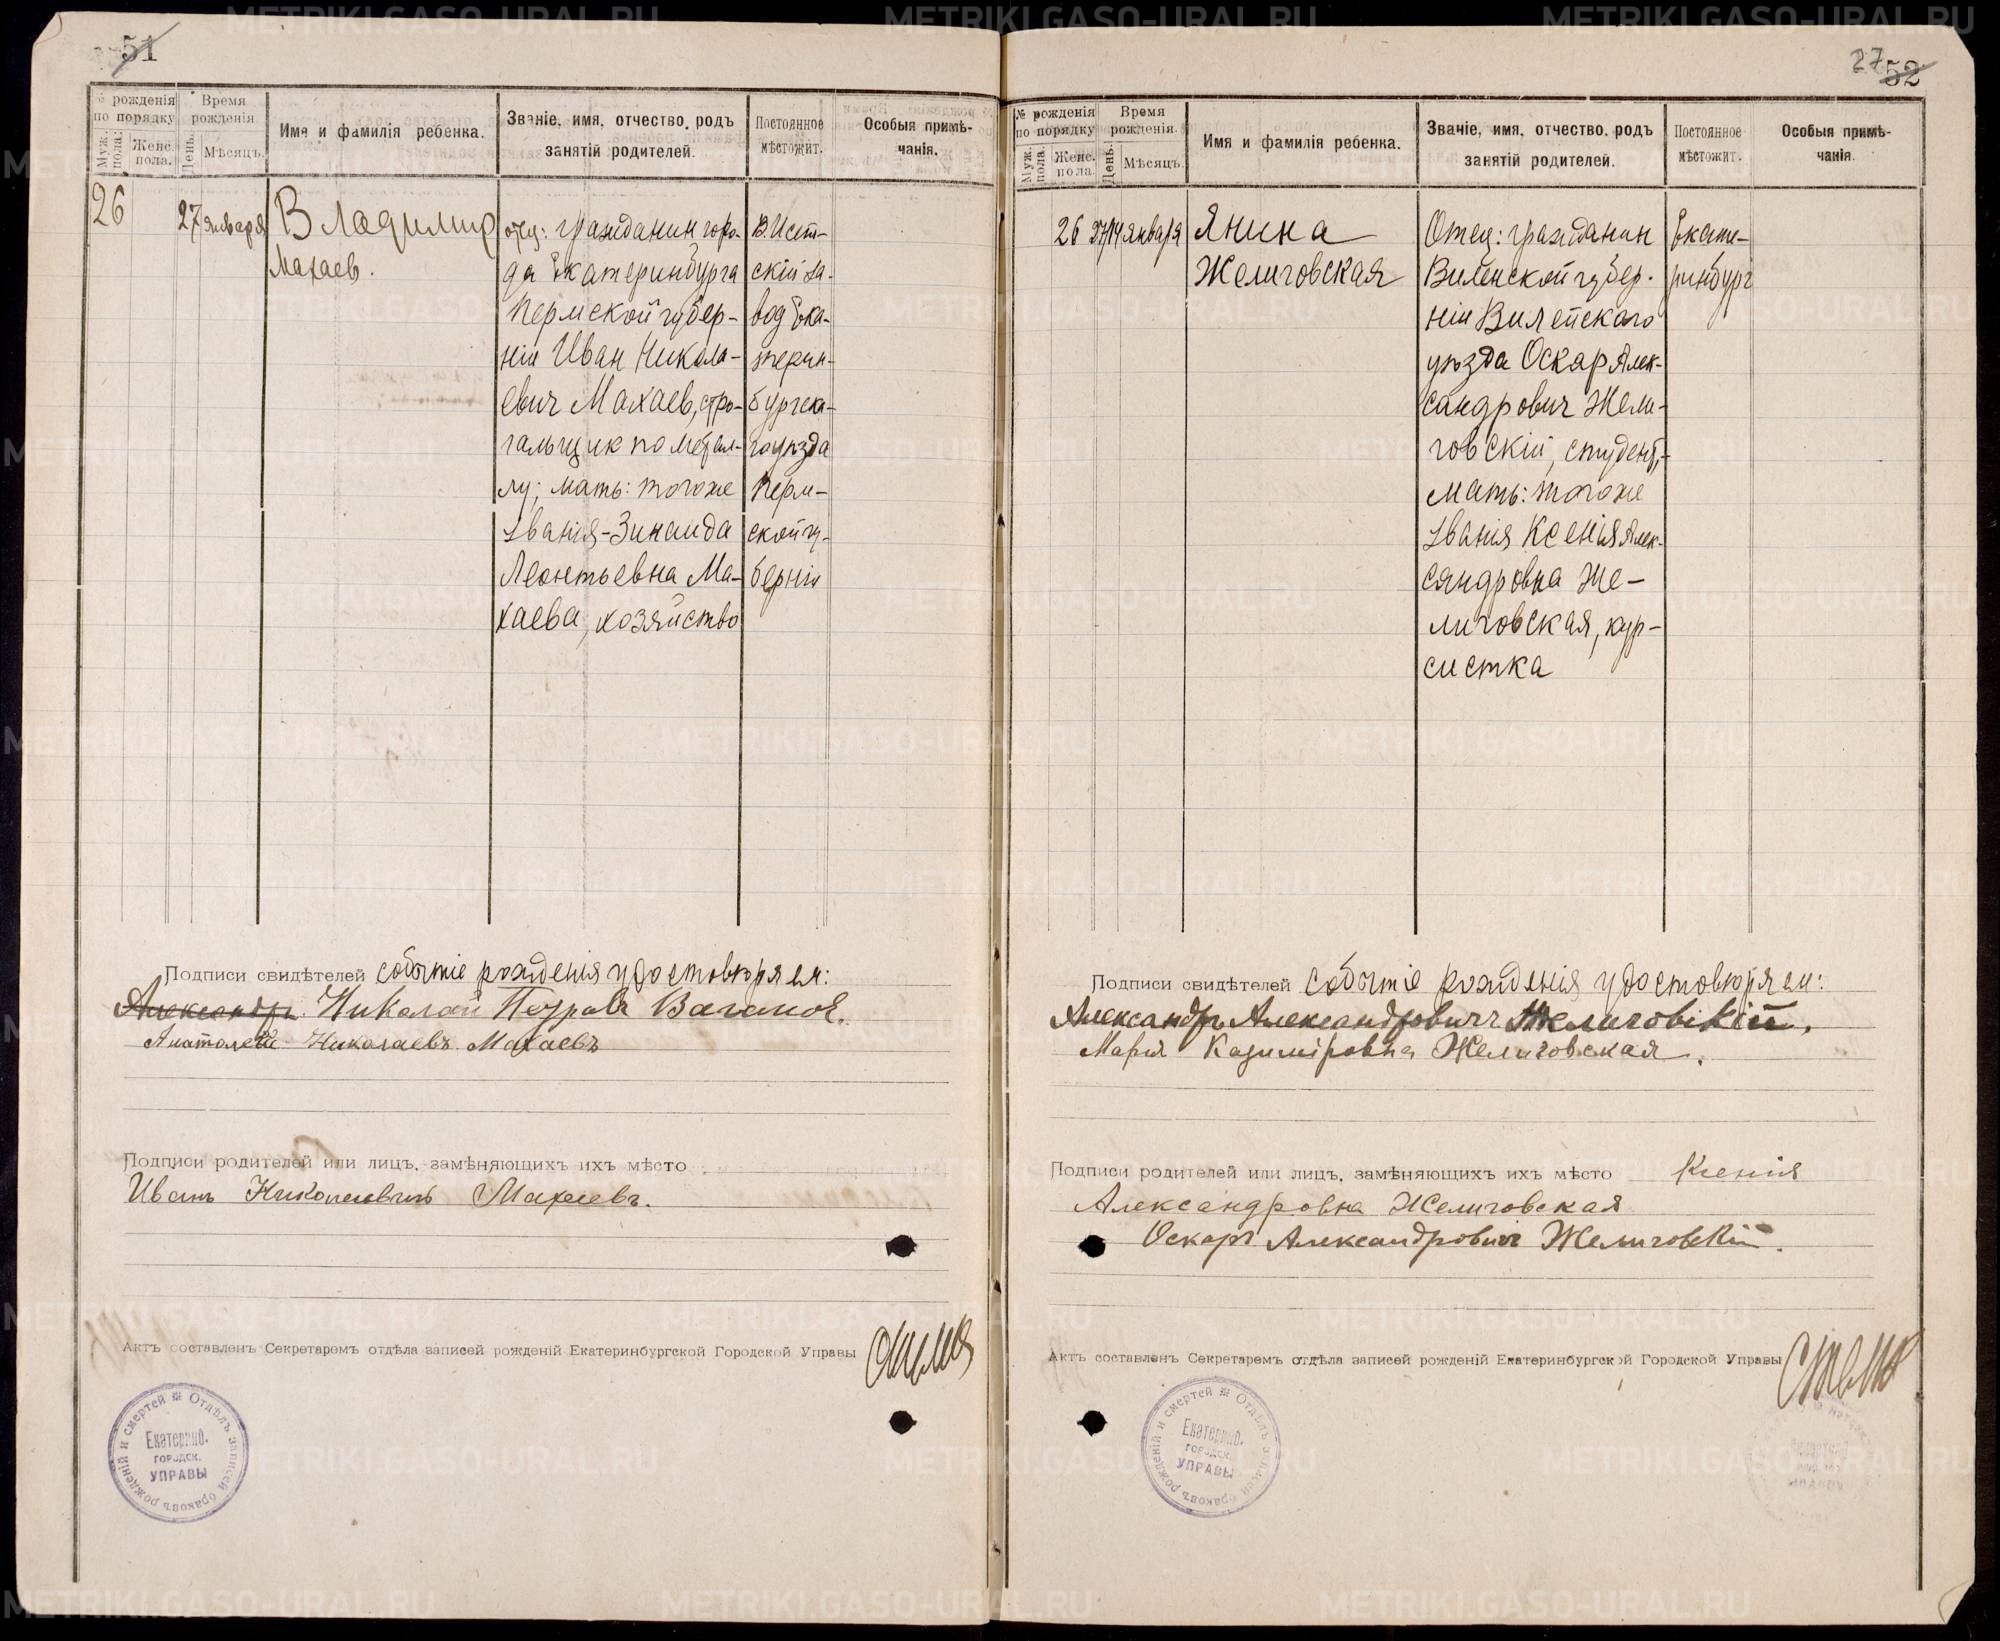 51
№ рожденія по порядку
Муж. пола.
Женс. пола.
Время рожденія
День.
Мѣсяцъ.
Имя и фамилія ребенка.
Званіе, имя, отчество, родъ занятій родителей.
Постоянное мѣстожит.
Особыя примѣчанія.
26
27 января
Владимир
Махаев.
отец: гражданин горо-
да Екатеринбурга
Пермской губер-
ніи Иван Никола-
евич Махаев, стро-
гальщик по метал-
лу; мать: тогоже
званія-Зинаида
Леонтьевна Ма-
хаева, хозяйство
В.Исет-
скій за-
вод Ека-
терин-
бургска-
го уѣзда
Перм-
ской гу-
берніи
Подписи свидѣтелей событіе рожденія удостовѣряем:
Александръ Николай Петровъ Вагановъ.
Анатолей Николаевъ Махаевъ
Подписи родителей или лицъ, замѣняющихъ ихъ мѣсто
Иванъ Николаевичъ Махаевъ.
Актъ составленъ Секретаремъ отдѣла записей рожденій Екатеринбургской Городской Управы
Отдѣлъ записей браковъ рожденій и смертей
Екатеринб.
ГОРОДСК.
УПРАВЫ
27 52
№ рожденія по порядку
Муж. пола.
Женс. пола
Время рожденія.
День.
Мѣсяцъ.
Имя и фамилія ребенка.
Званіе, имя, отчество, родъ занятій родителей.
Постоянное мѣстожит.
Особыя примѣчанія.
26 27/14 января
Янина
Желиговская
Отец: гражданин
Виленской губер-
ніи Вилейскаго
уѣзда Оскар Алек-
сандрович Жели-
говскій, студент,-
мать: тогоже
званія Ксенія Алек-
сандровна Же-
лиговская, кур-
систка
Екате-
ринбург
Подписи свидѣтелей событіе рожденія удостовѣряем:
Александръ Александровичъ Желиговскій.
Марія Казиміровна Желиговская.
Подписи родителей или лицъ, замѣняющихъ ихъ мѣсто Ксенія
Александровна Желиговская
Оскаръ Александровичъ Желиговскій.
Актъ составленъ Секретаремъ отдѣла записей рожденій Екатеринбургской Городской Управы
Отдѣлъ записей браковъ рожденій и смертей
Екатеринб.
ГОРОДСК.
УПРАВЫ
METRIKI.GASO-URAL.RU